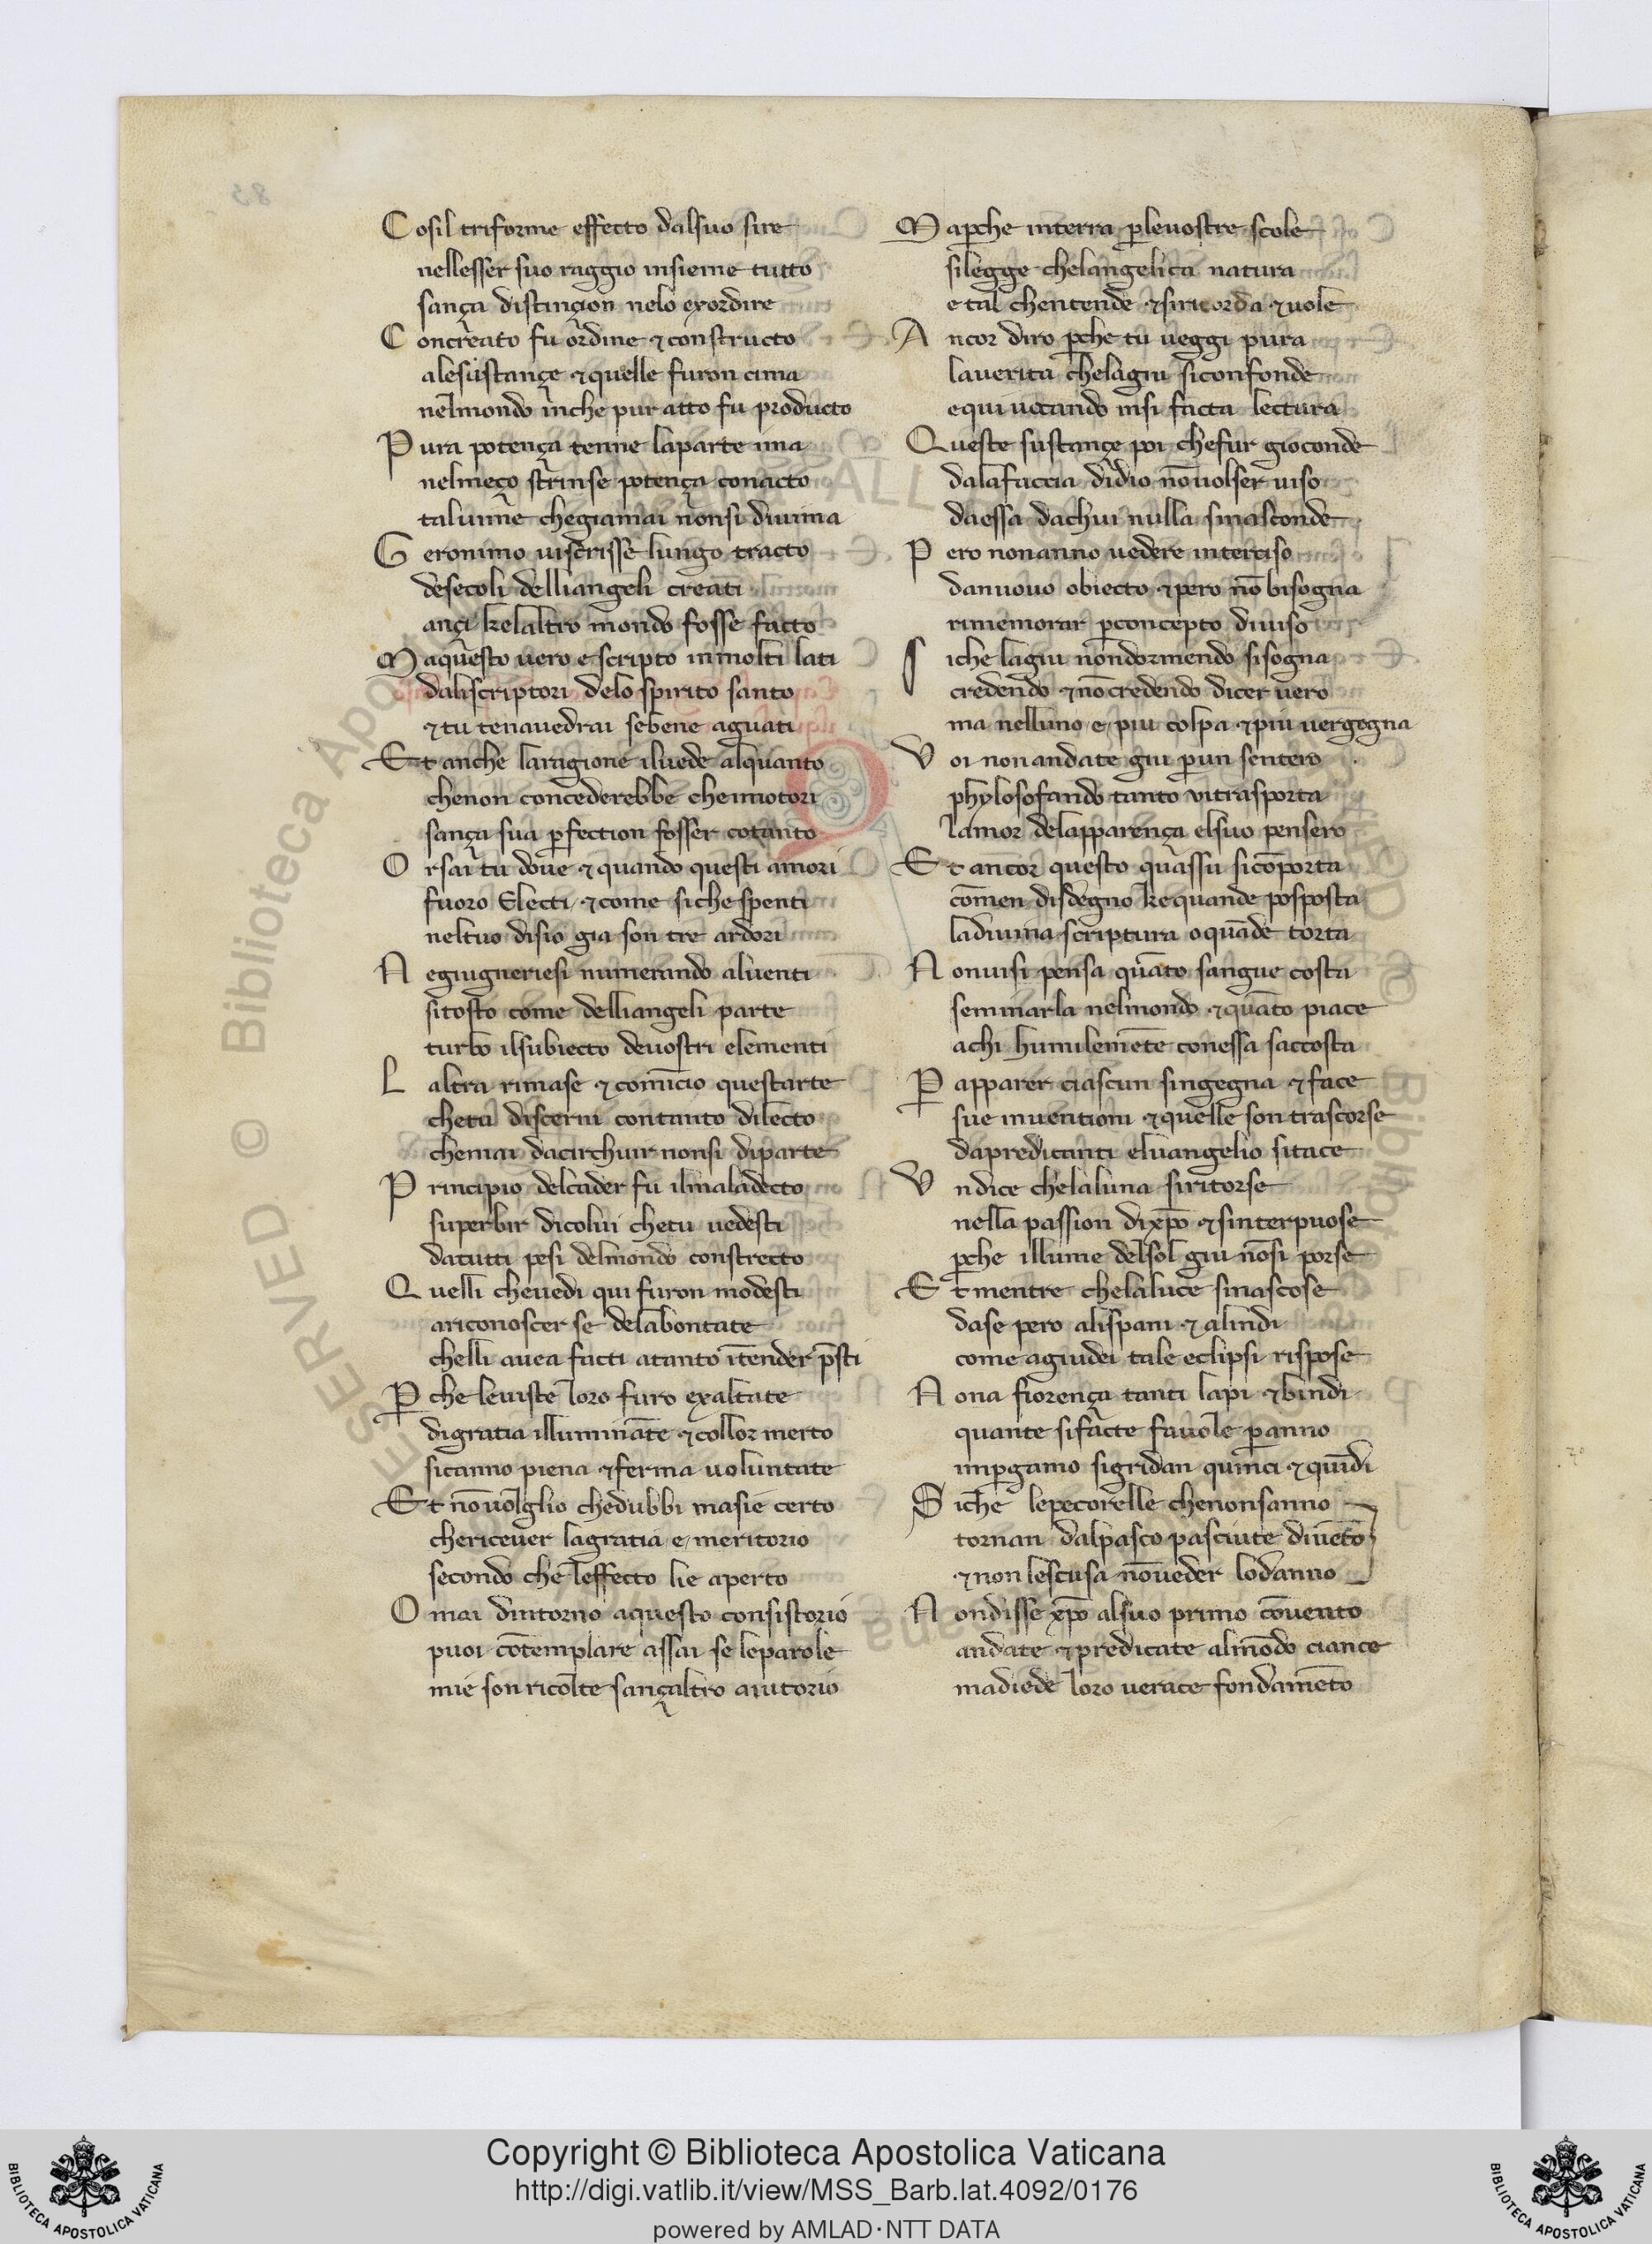 Cosil triforme effecto dalsuo sire
nellesser suo raggio insieme tutto
sança distinçion nelo exordire
Concreato fu ordine ⁊ constructo
alesustançe ⁊ quelle furon cima
nelmondo inche pur atto fu producto
Pura potença tenne laparte ima
nelmeço strinse potença conacto
taluime chegiamai nonsi diuima
Geronimo uiscrisse lungo tracto
desecoli delliangeli creati
ançi kelaltro mondo fosse facto
Maquesto uero e scripto inmolti lati
daliscriptori delo spirito santo
⁊ tu tenauedrai sebene aguati
Et anche laragione iluede alquanto
chenon concederebbe chemotori
sança sua ꝑfection fosser cotanto
Orsai tu doue ⁊ quando questi amori
fuoro Electi ⁊ come siche spenti
neltuo disio gia son tre ardori
Negiugneriesi numerando aluenti
sitosto come delliangeli parte
turbo ilsubiecto deuostri elementi
Laltra rimase ⁊ comīcio questarte
chetu discerni contanto dilecto
chemai dacirchuir nonsi diparte
Principio delcader fu ilmaladecto
superbir dicolui chetu uedesti
datutti pesi delmondo constrecto
Quelli cheuedi qui furon modesti
ariconoscer se delabontate
chelli auea facti atanto ītender p̄sti
Ꝑche leuiste loro furo exaltate
digratia illumināte ⁊ collor merto
sicanno piena ⁊ ferma uoluntate
Et nōuoglio chedubbi masie certo
chericeuer lagratia e meritorio
secondo che leffecto lie aperto
Omai dintorno aquesto consistorio
puoi cōtemplare assai se leparole
mie son ricolte sançaltro aiutorio
Maꝑche interra ꝑleuostre scole
silegge chelangelica natura
e tal chentende ⁊ siricorda ⁊ uole
Ancor diro ꝑche tu ueggi pura
lauerita chelagiu siconfonde
equiuocando insi facta lectura
Queste sustançe poi chefur gioconde
dalafaccia didio nōuolser uiso
daessa dachui nulla sinasconde
Pero nonanno uedere interciso
danuouo obiecto ⁊ pero nō bisogna
rimemorar ꝑconcepto diuiso
Siche lagiu nondormendo sisogna
credendo ⁊ nōcredendo dicer uero
ma nelluno e piu colpa ⁊ piu uergogna
Voi non andate giu ꝑun sentero
phylosofando tanto vitrasporta
lamor delapparença elsuo pensero
Et ancor questo quassu sicōporta
cōmen disdegno kequande posposta
ladiuina scriptura oquāde torta
Nonuisi pensa quāto sangue costa
seminarla nelmondo ⁊ quāto piace
achi humilemēte conessa saccosta
Ꝑ apparer ciascun singegna ⁊ face
sue inuentioni ⁊ quelle son trascorse
dapredicanti eluangelio sitace
Vndice chelaluna siritorse
nella passion dixp̄o ⁊ sinterpuose
ꝑche illume delsol giu nōsi porse
Et mentre chelaluce sinascose
dase pero alispani ⁊ alindi
come agiudei tale eclipsi rispose
Nona fiorença tanti lapi ⁊ bindi
quante sifacte fauole ꝑanno
imꝑgamo sigridan quinci ⁊ quīdi
Siche lepecorelle chenonsanno
tornan dalpasco pasciute diuēto
⁊ non lescusa nōueder lodanno
Nondisse xp̄o alsuo primo cōuento
andate ⁊ predicate almōdo ciance
madiede loro uerace fondamēto
Copyright © Biblioteca Apostolica Vaticana
http://digi.vatlib.it/view/MSS_Barb.lat.4092/0176
powered by AMLAD·NTT DATA
BIBLIOTECA APOSTOLICA VATICANA
BIBLIOTECA APOSTOLICA VATICANA